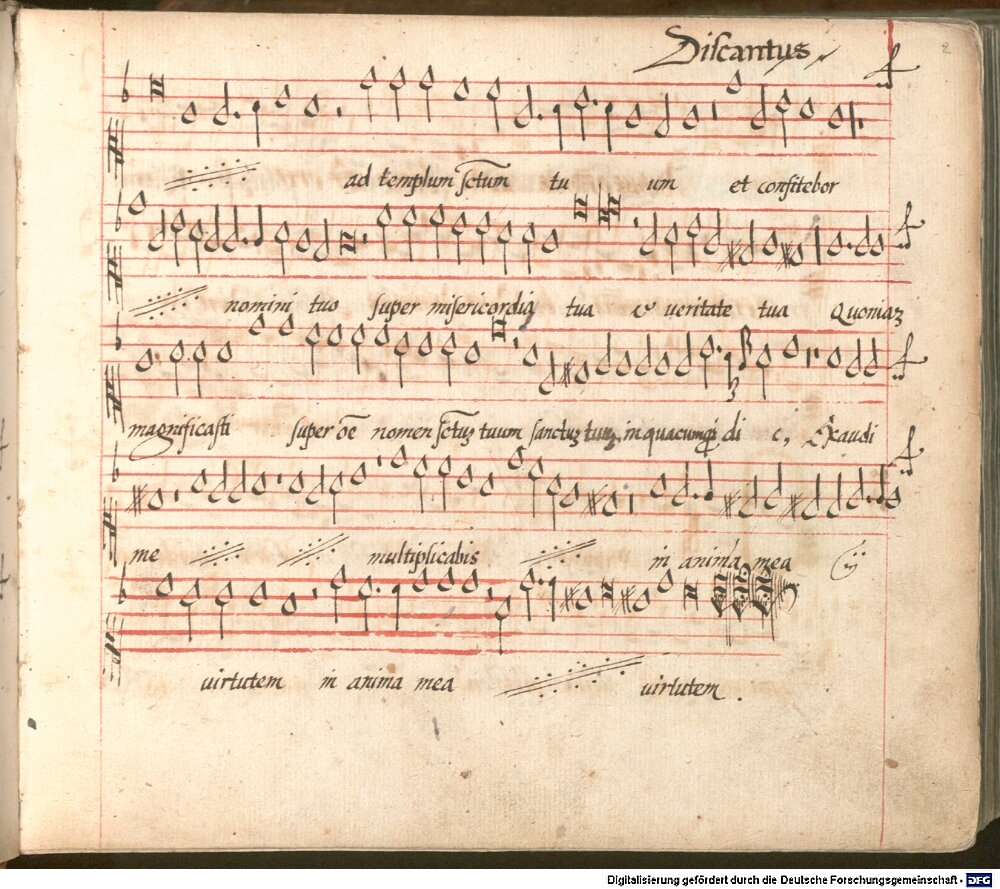 Discantus
2
ad templum sctum tu um et confitebor
nomini tuo super misericordia tua & veritate tua Quoniaz
magnificasti super oe nomen sctuz tuum sanctuz in quacumq di e, Exaudi
me multiplicabis in anima mea ij
virtutem in anima mea virtutem.
Digitalisierung gefördert durch die Deutsche Forschungsgemeinschaft - DFG